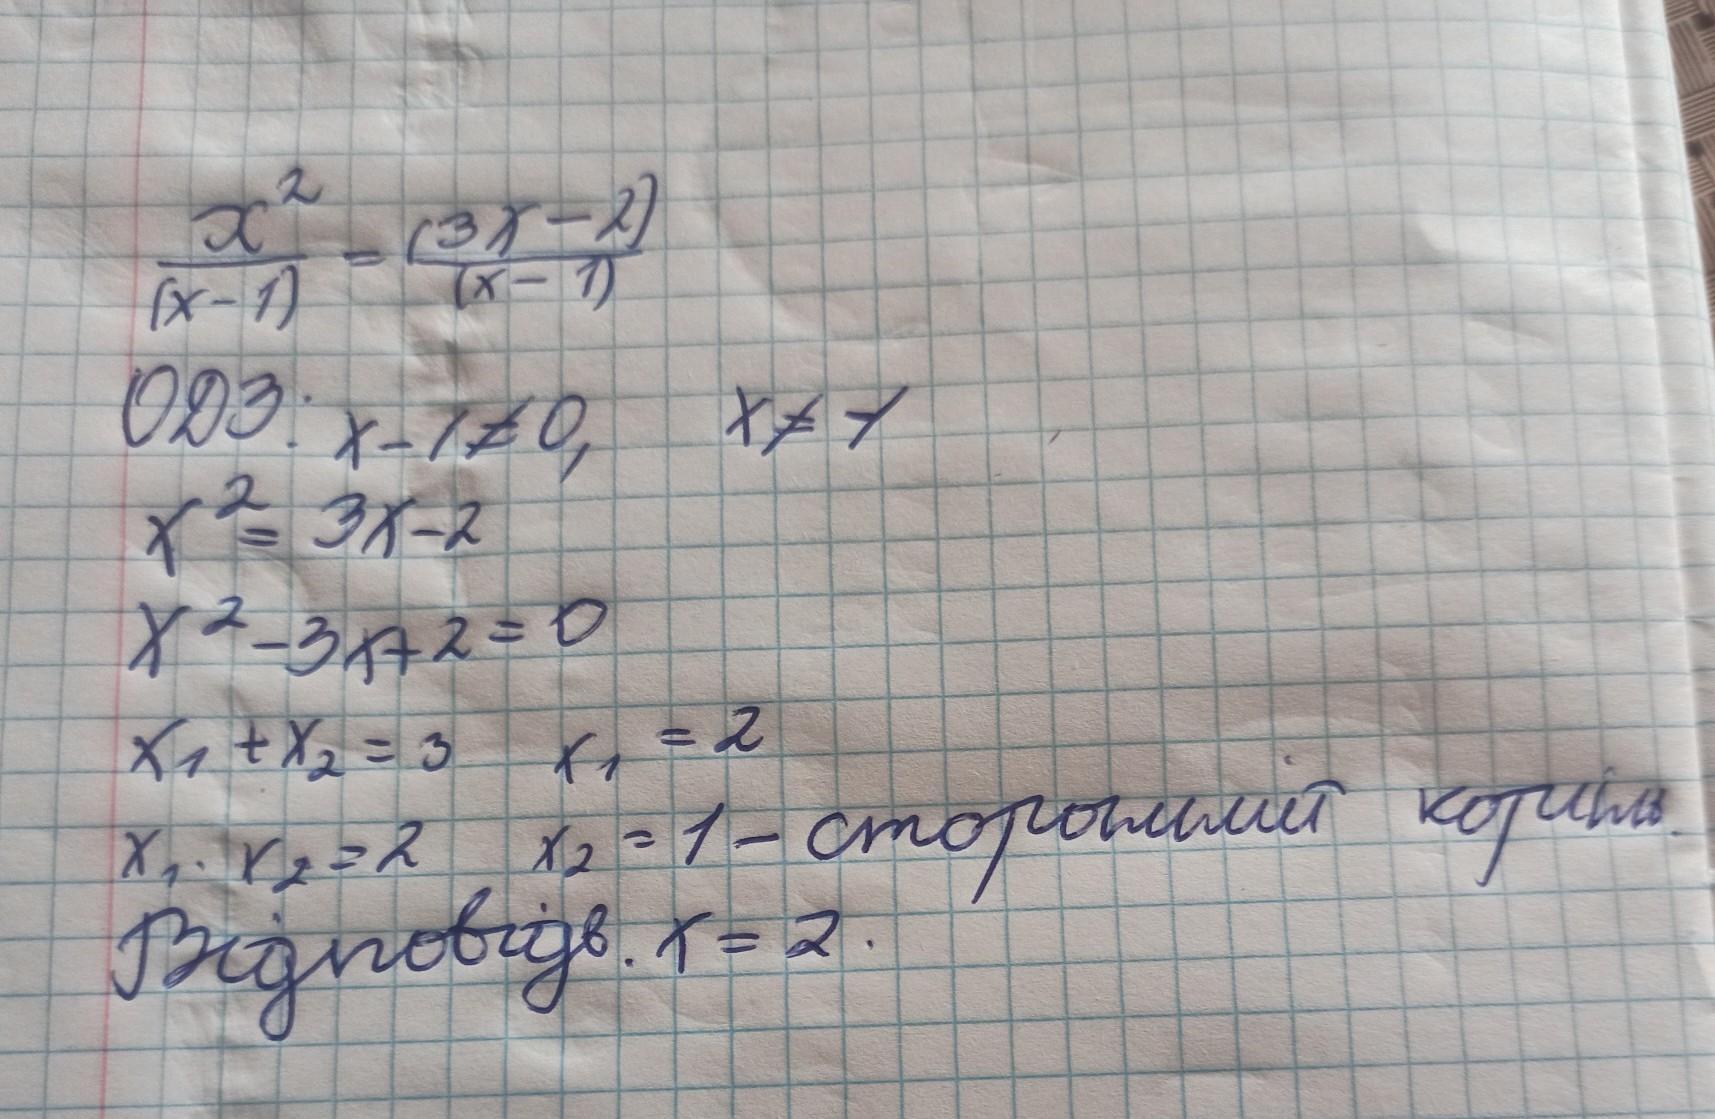 x²/(x-1) = (3x-2)/(x-1)
ОДЗ: x-1≠0, x≠1
x²= 3x-2
x²-3x+2=0
x₁+x₂=3 x₁=2
x₁·x₂=2 x₂=1- сторонній корінь.
Відповідь. x=2.